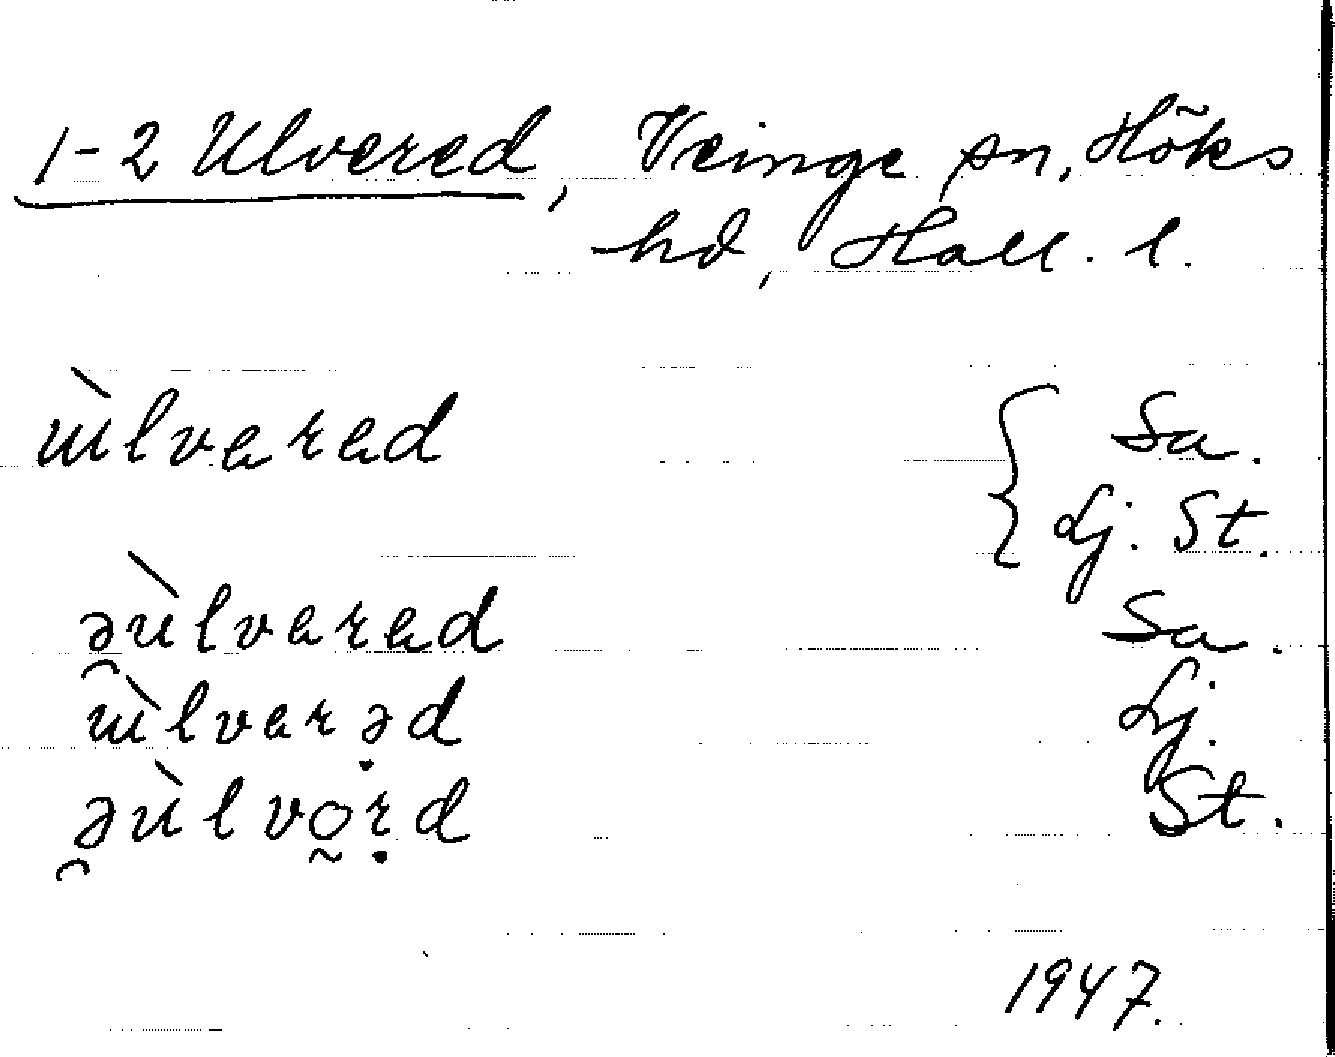 1-2 Ulvered, Veinge sn, Höks
hd, Hall. l.
ɯ̀lvered Sa.
Lj. St.
ə̯ùlvered Sa.
ɯ̀lverə̣d Lj.
ə̯ùlvo̰ṛd St.
1947.